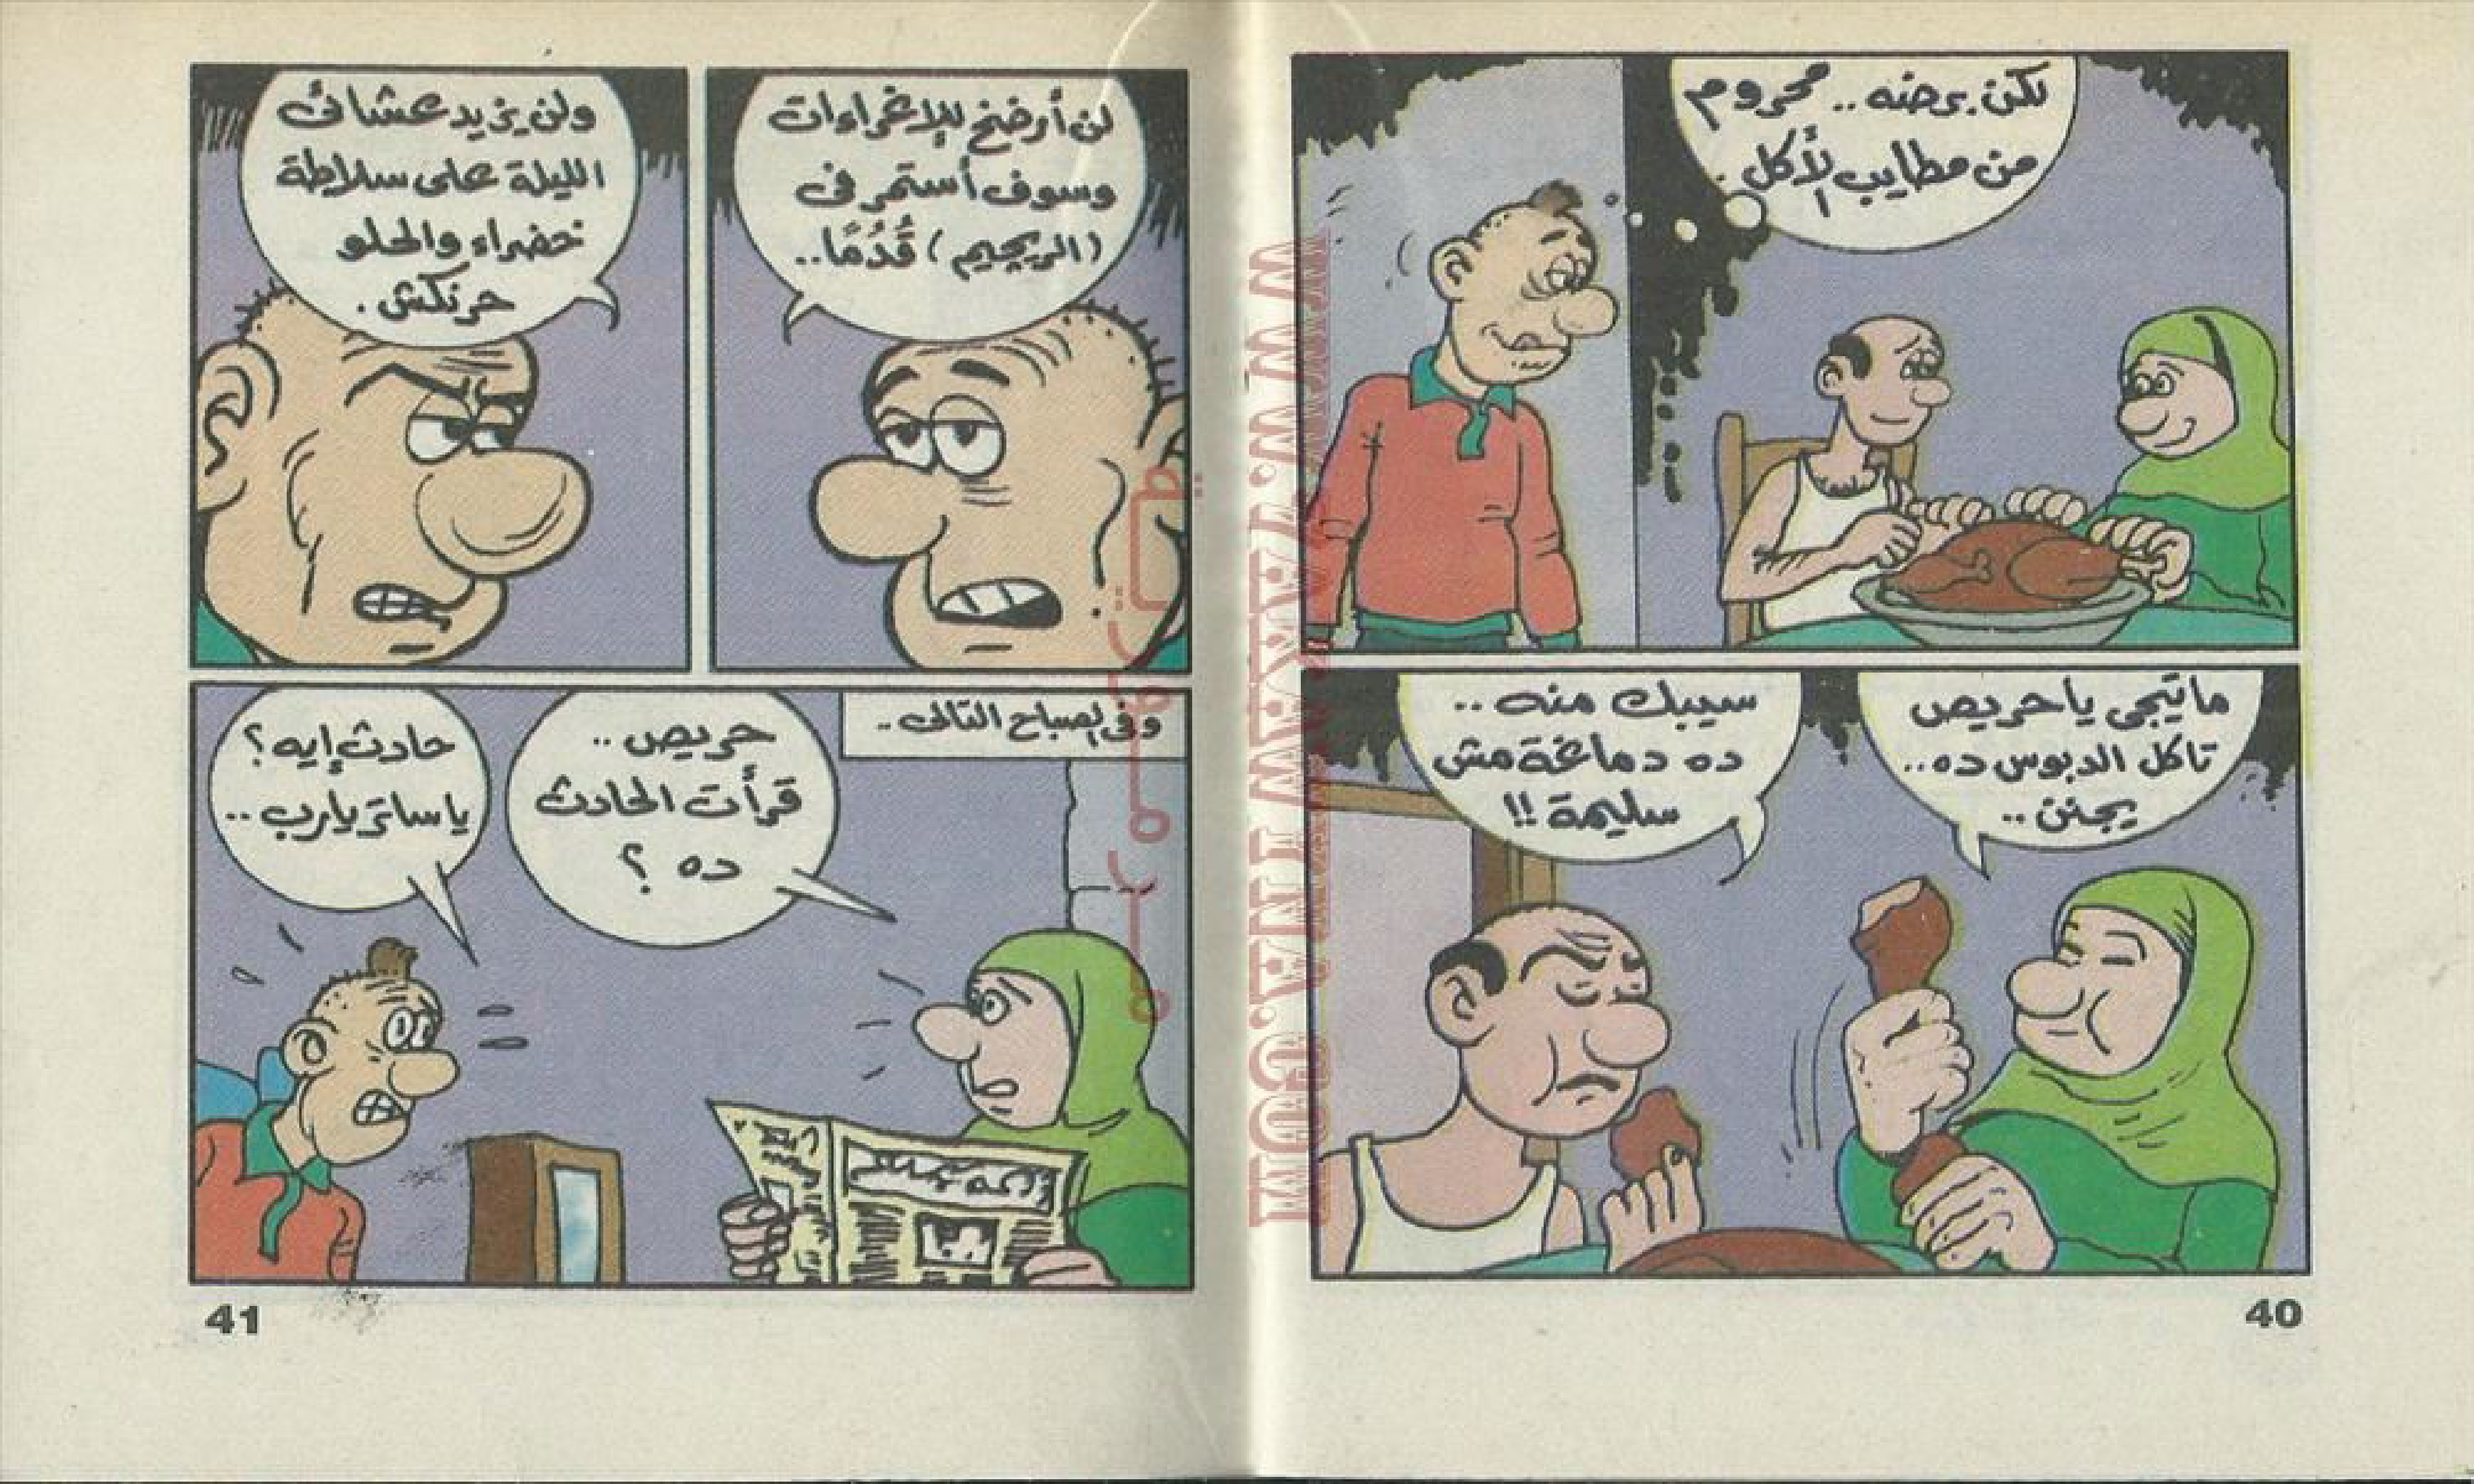 لكن برضه .. محروم
من مطايب الأكل .
ما تيجى يا حريص
تاكل الدبوس ده ..
يجنن ..
سيبك منه ..
ده دماغة مش
سليمة !!
40
لن أرضخ للإغراءات
وسوف أستمر فى
(الريچيم) قُدُمًا ..
ولن يزيد عشائى
الليلة على سلاطة
خضراء والحلو
حرنكش .
وفى الصباح التالى ..
حريص ..
قرأت الحادث
ده ؟
حادث إيه ؟
يا ساتر يارب ..
41